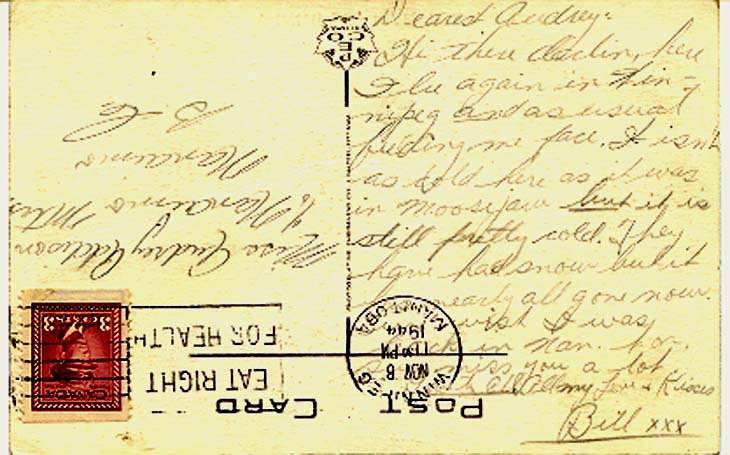 Dearest Audrey:
Hi there darlin, here
I be again in Win-
nipeg and as usual
feeding me face. It isn't
as cold here as it was
in Moosejaw but it is
still pretty cold. They
have had snow but it
nearly all gone now.
wish I was
back in Nan. for
miss you a lot
All my Love & Kisses
Bill xxx
POST CARD
WINNIPEG
NOV 6
PM
1944
MANITOBA
EAT RIGHT
FOR HEALTH
CANADA
3 CENTS 3
Miss Audrey Addison
c/o Nanaimo Mtrs,
Nanaimo
B.C.
PECO